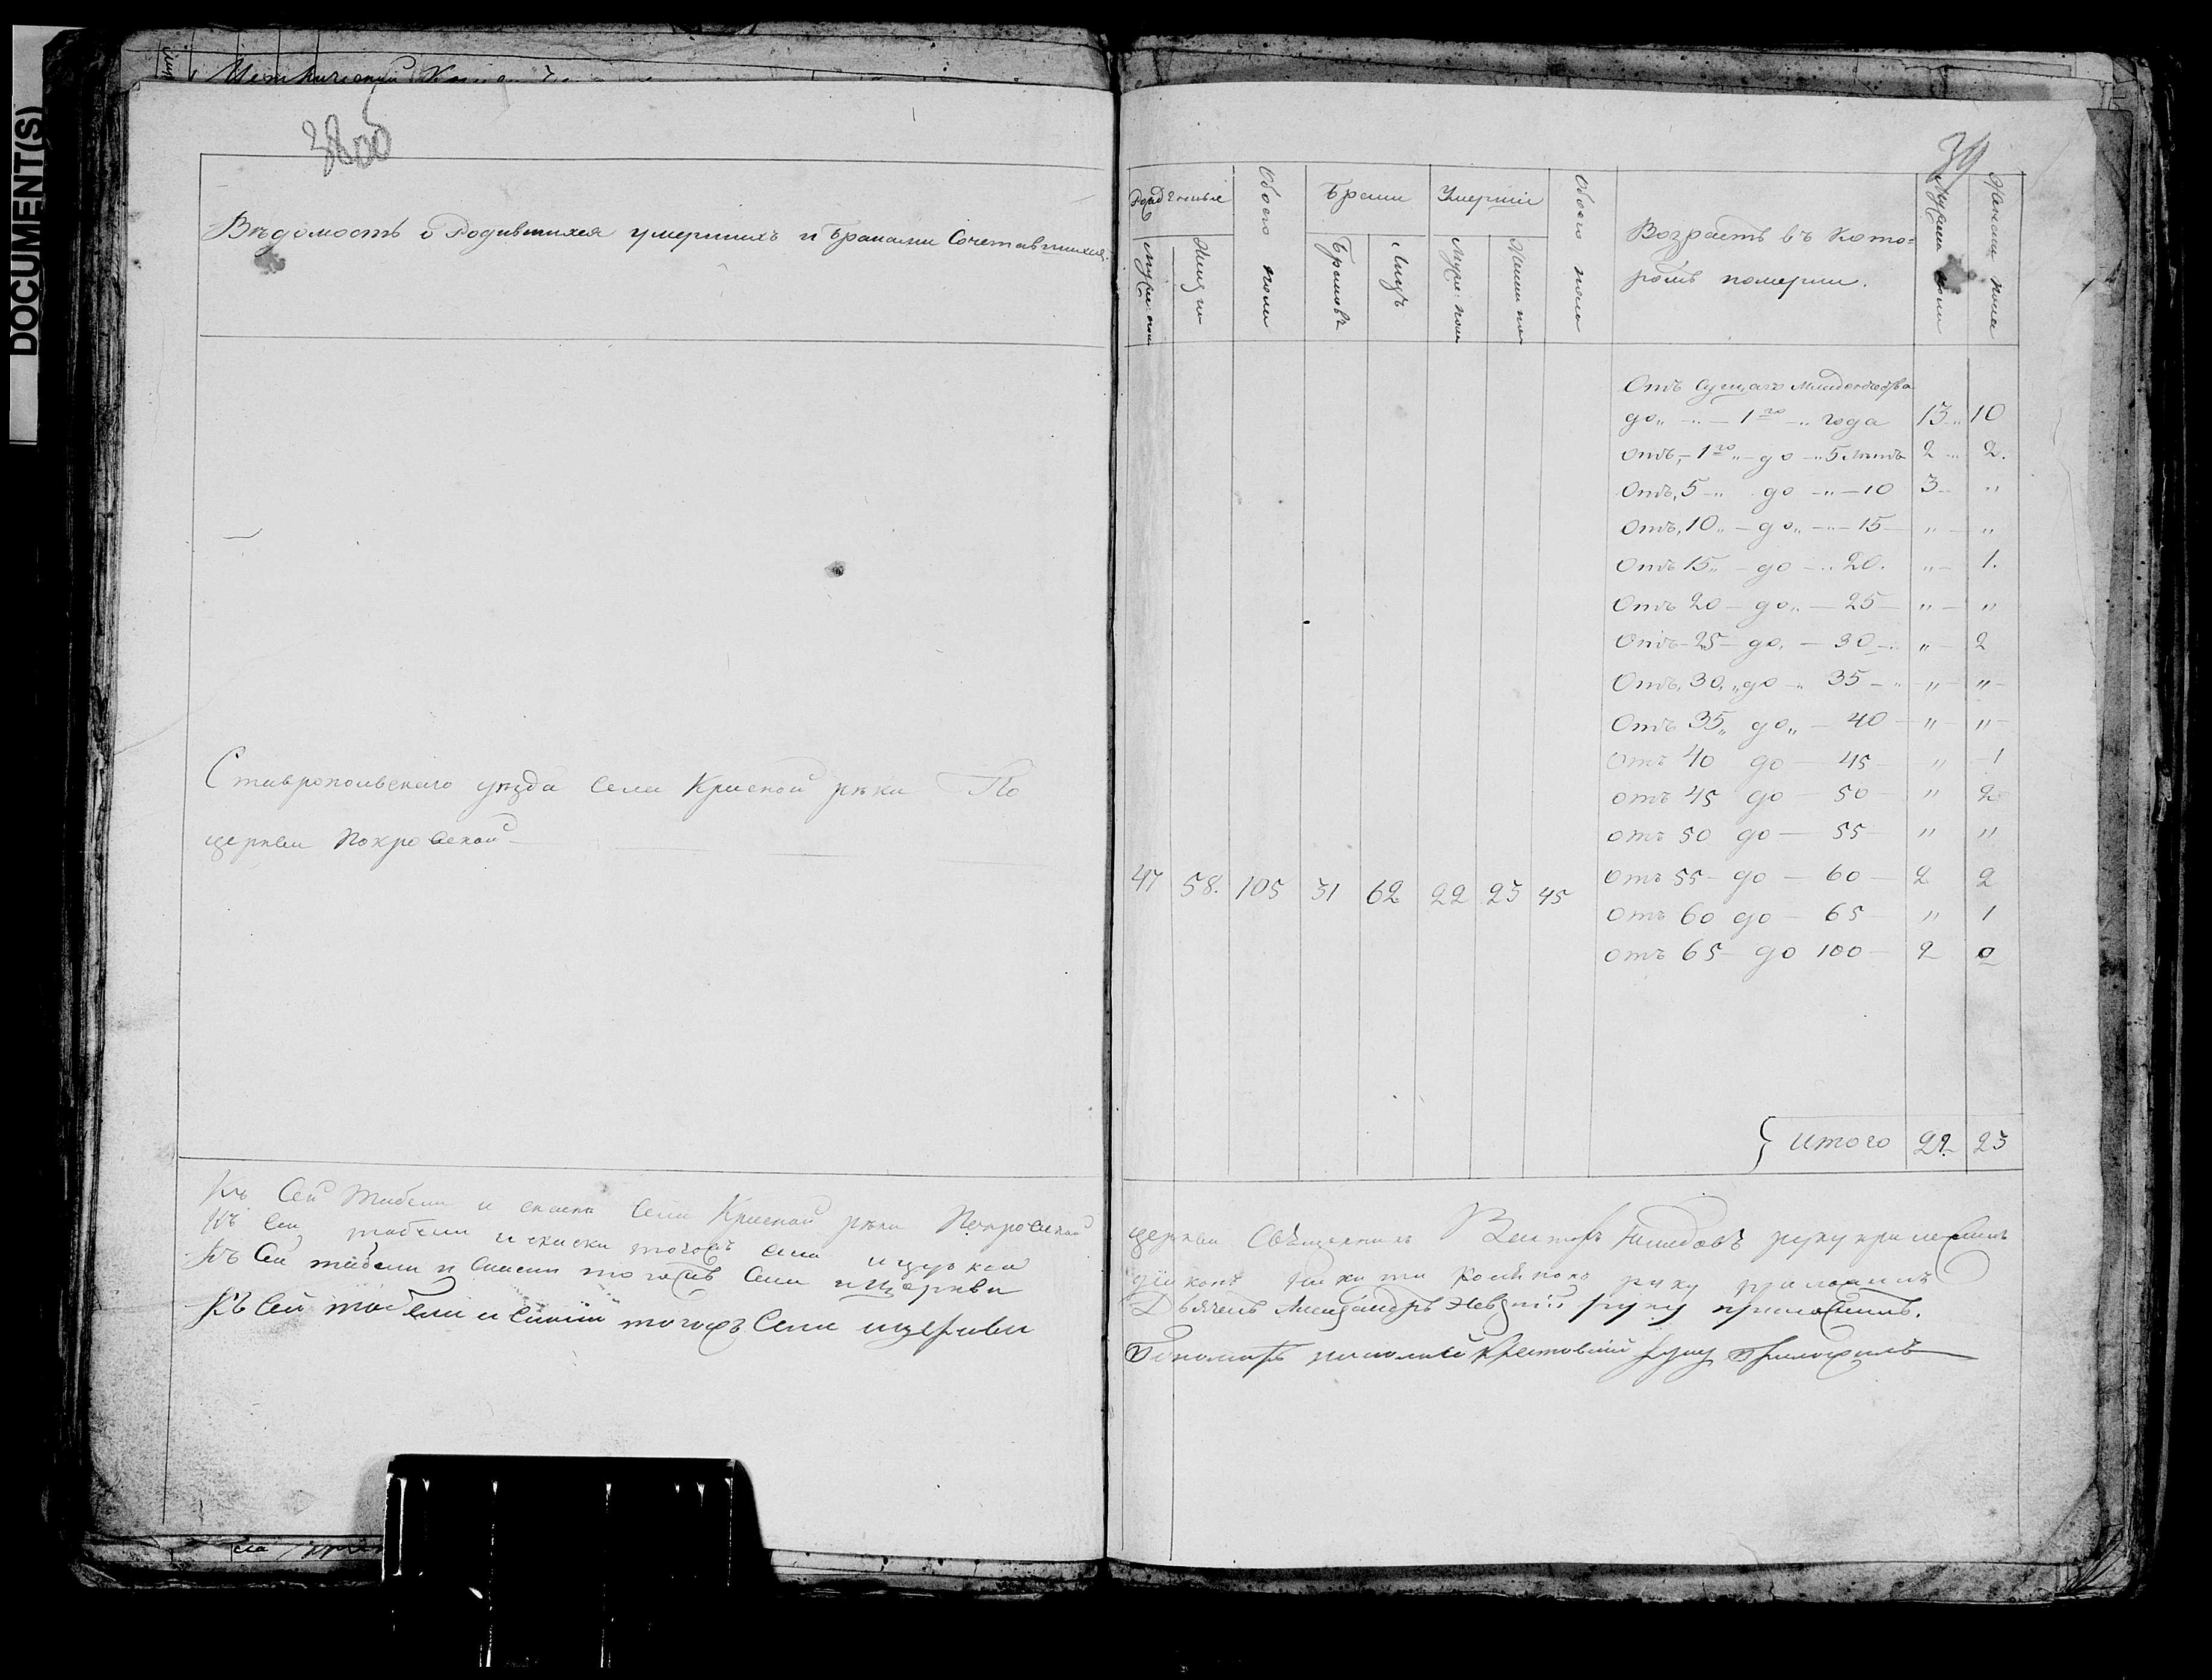 DOCUMENT(S)
38 об
Вѣдомость о Родившихся умершихъ и Браками Сочетавшихся.
Ставропольскаго уѣзда Села Красной рѣки По
церкви Покровской
Къ Сей табели и сказкѣ Села Красной рѣки Покровской
Къ сей табели и сказки тогожъ села и церкви
Къ Сей табели и Сказки тогожъ Села и Церкви
Къ Сей табели и тогожъ Села и церкви
39
Рожденные
Обоего пола
Браки
Умершіе
Обоего пола
Возрастъ въ кото=
ромъ померли.
Мужеска пола
Женска пола
Муж: пола
Женск по
Браковъ
Лицъ
Муже: пола
Женск по
Отъ сущаго младенчества
до 1го года 13 10
Отъ 1го до 5 Лѣтъ 2 2.
Отъ 5 до 10 3 "
Отъ 10 до 15 " "
Отъ 15 до 20. " 1.
Отъ 20 до 25 " "
Отъ 25 до 30 " 2
Отъ 30 до 35 " "
Отъ 35 до 40 " "
Отъ 40 до 45 " 1
отъ 45 до 50 " 2
отъ 50 до 55 " "
отъ 55 до 60 2 2
отъ 60 до 65 " 1
отъ 65 до 100 2 0
47 58. 105 31 62 22 23 45
итого 22 23
церкви Священникъ руку приложилъ
діаконъ руку приложилъ
Дьячекъ Александръ Невскій руку приложилъ.
Пономарь Крестовскій руку приложилъ